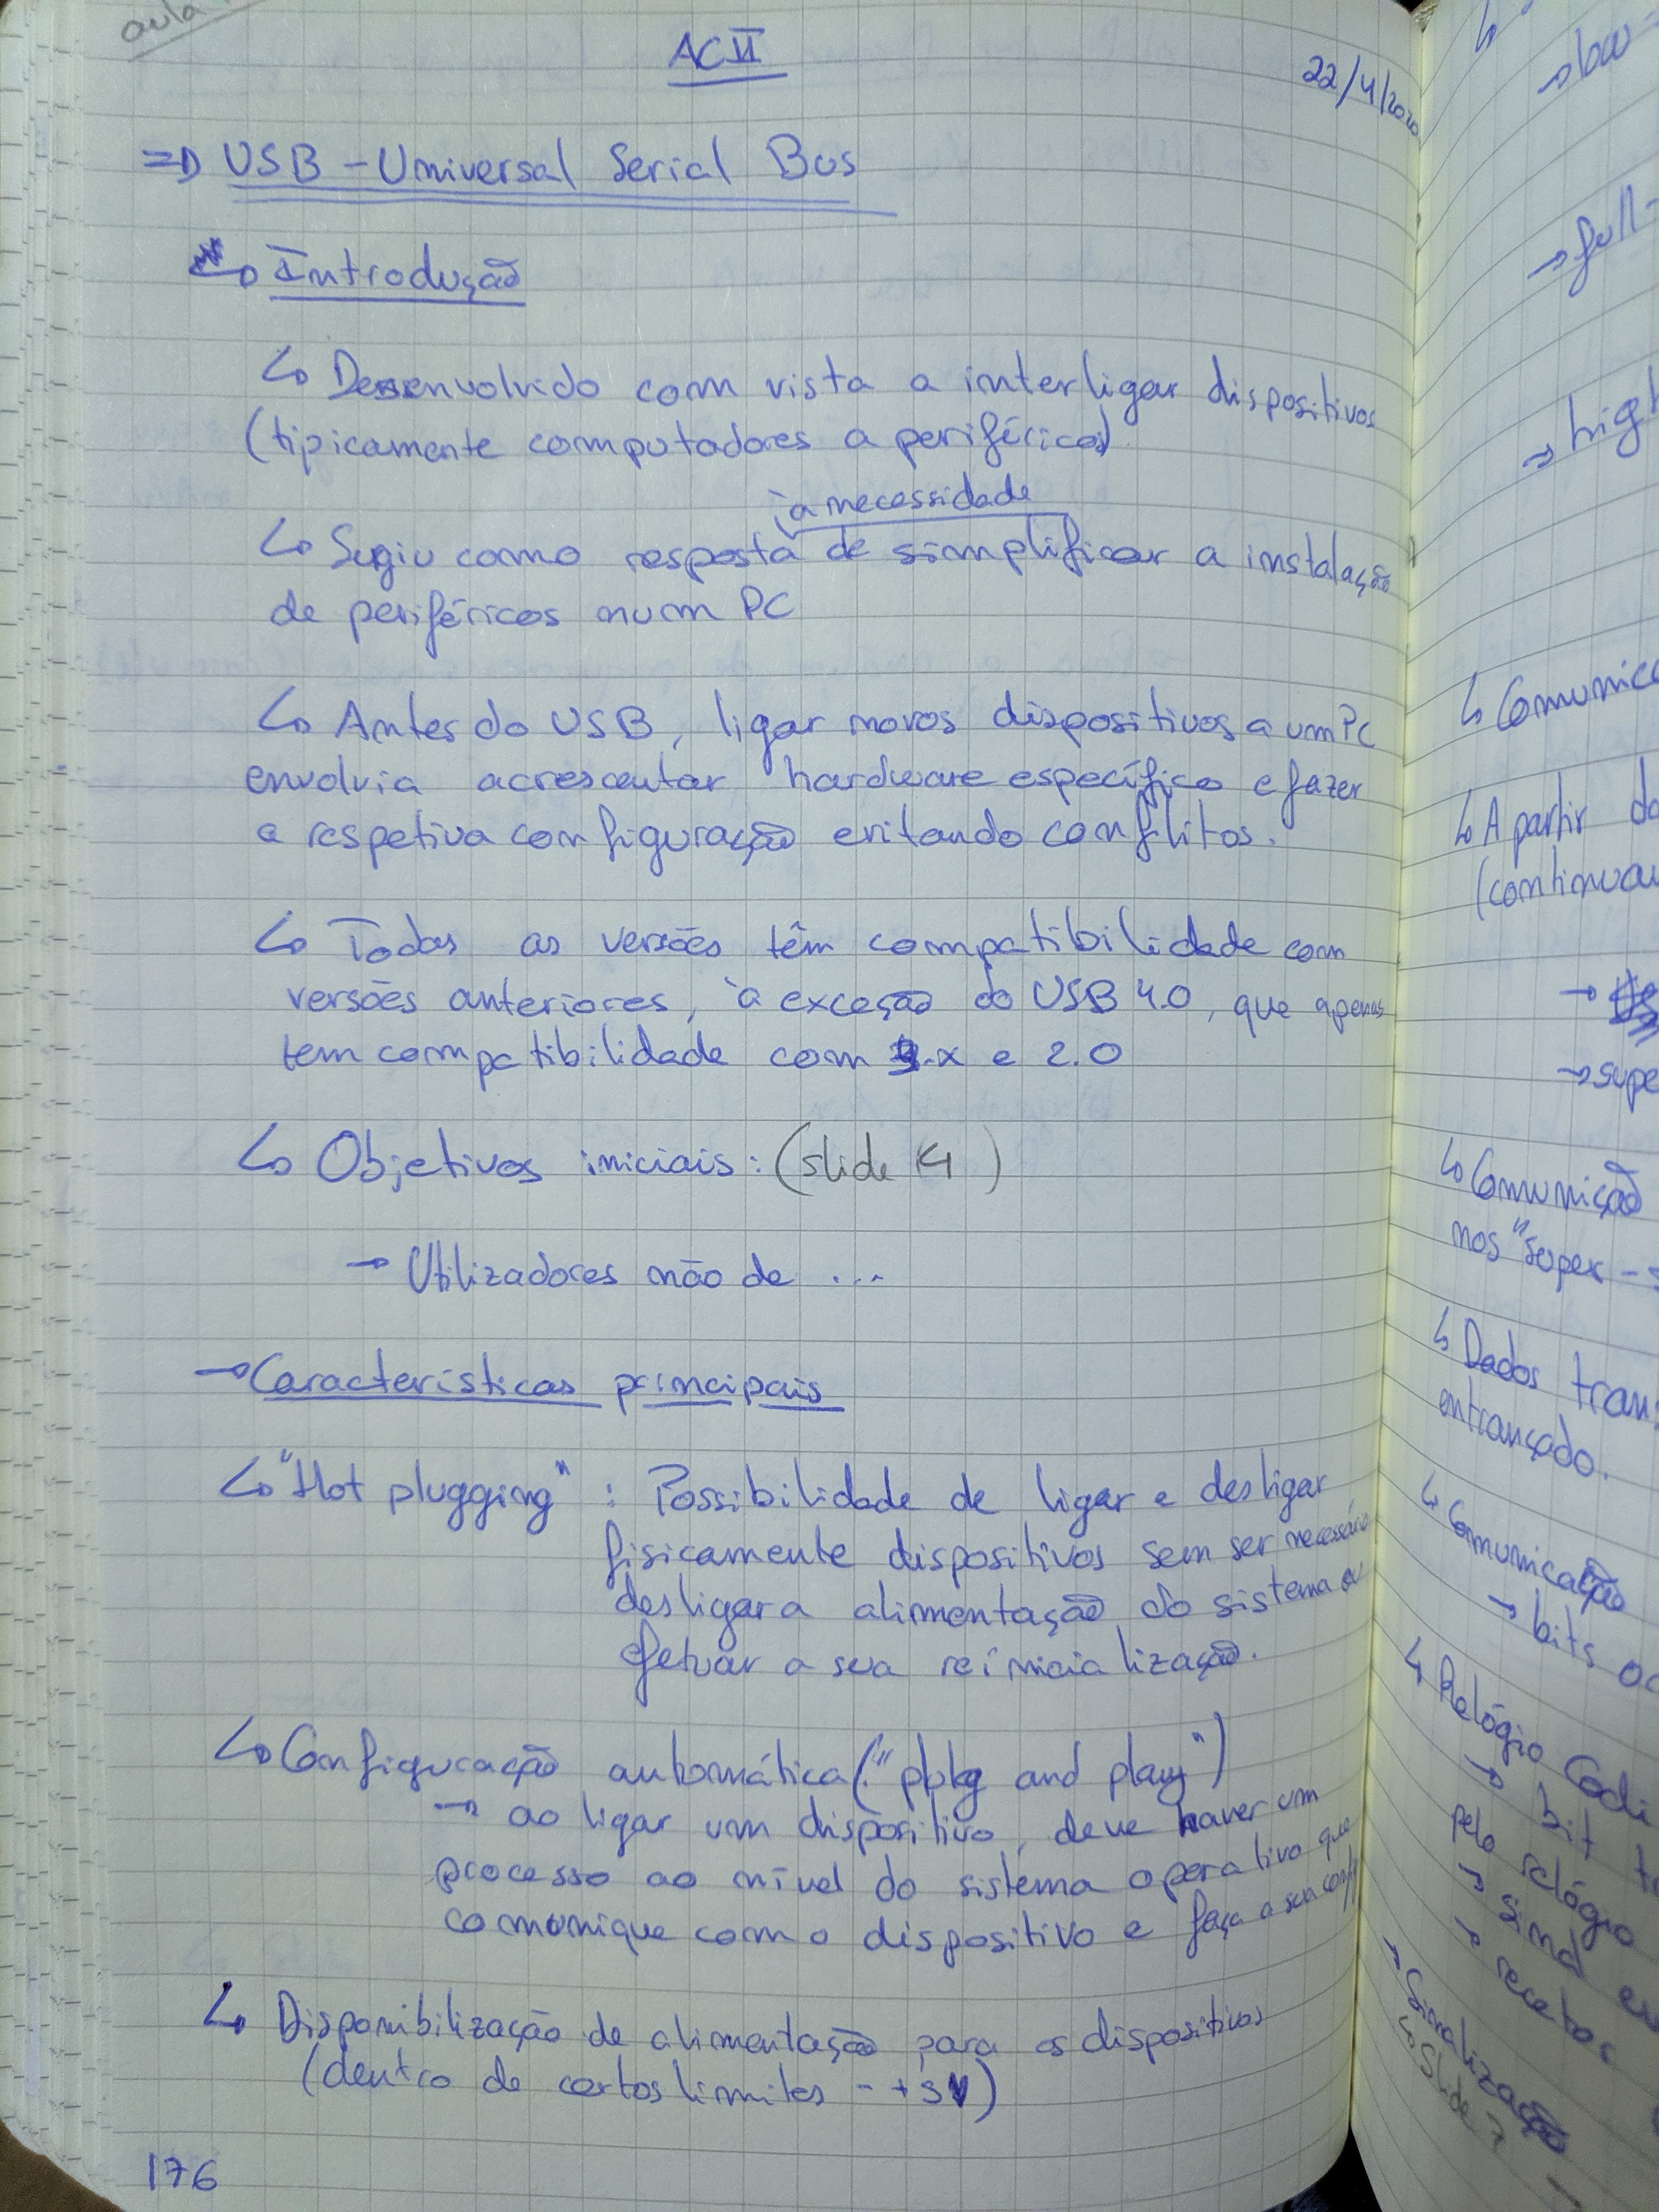 aula
ACII
22/4/2020
=> USB - Universal Serial Bus
↳ Introdução
↳ Desenvolvido com vista a interligar dispositivos
(tipicamente computadores a periféricos)
à necessidade
↳ Sugiu como resposta de simplificar a instalação
de periféricos num PC
↳ Antes do USB, ligar novos dispositivos a um PC
envolvia acrescentar hardware específico e fazer
a respetiva configuração evitando conflitos.
↳ Todas as versões têm compatibilidade com
versões anteriores, à exceção do USB 4.0, que apenas
tem compatibilidade com 3.x e 2.0
↳ Objetivos iniciais: (slide 4)
→ Utilizadores não de ...
→ Características principais
↳ "Hot plugging" : Possibilidade de ligar e desligar
fisicamente dispositivos sem ser necessário
desligar a alimentação do sistema ou
efetuar a sua reínicialização.
↳ Configuração automática ("plug and play")
→ ao ligar um dispositivo, deve haver um
processo ao nível do sistema operativo que
comunique com o dispositivo e faça a sua conf
↳ Disponibilização de alimentação para os dispositivos
(dentro de certos limites - +5V)
176
→ low-
→ full-
→ high
↳ Comunica
↳ A partir do
(continua
→ supe
↳ Comunição
nos "super-s
↳ Dados trans
entrançado.
↳ Comunicação
→ bits
↳ Relógio Codi
→ bit
pelo relógio
→
→ recetor
→ Sinalização
↳ Slide 7